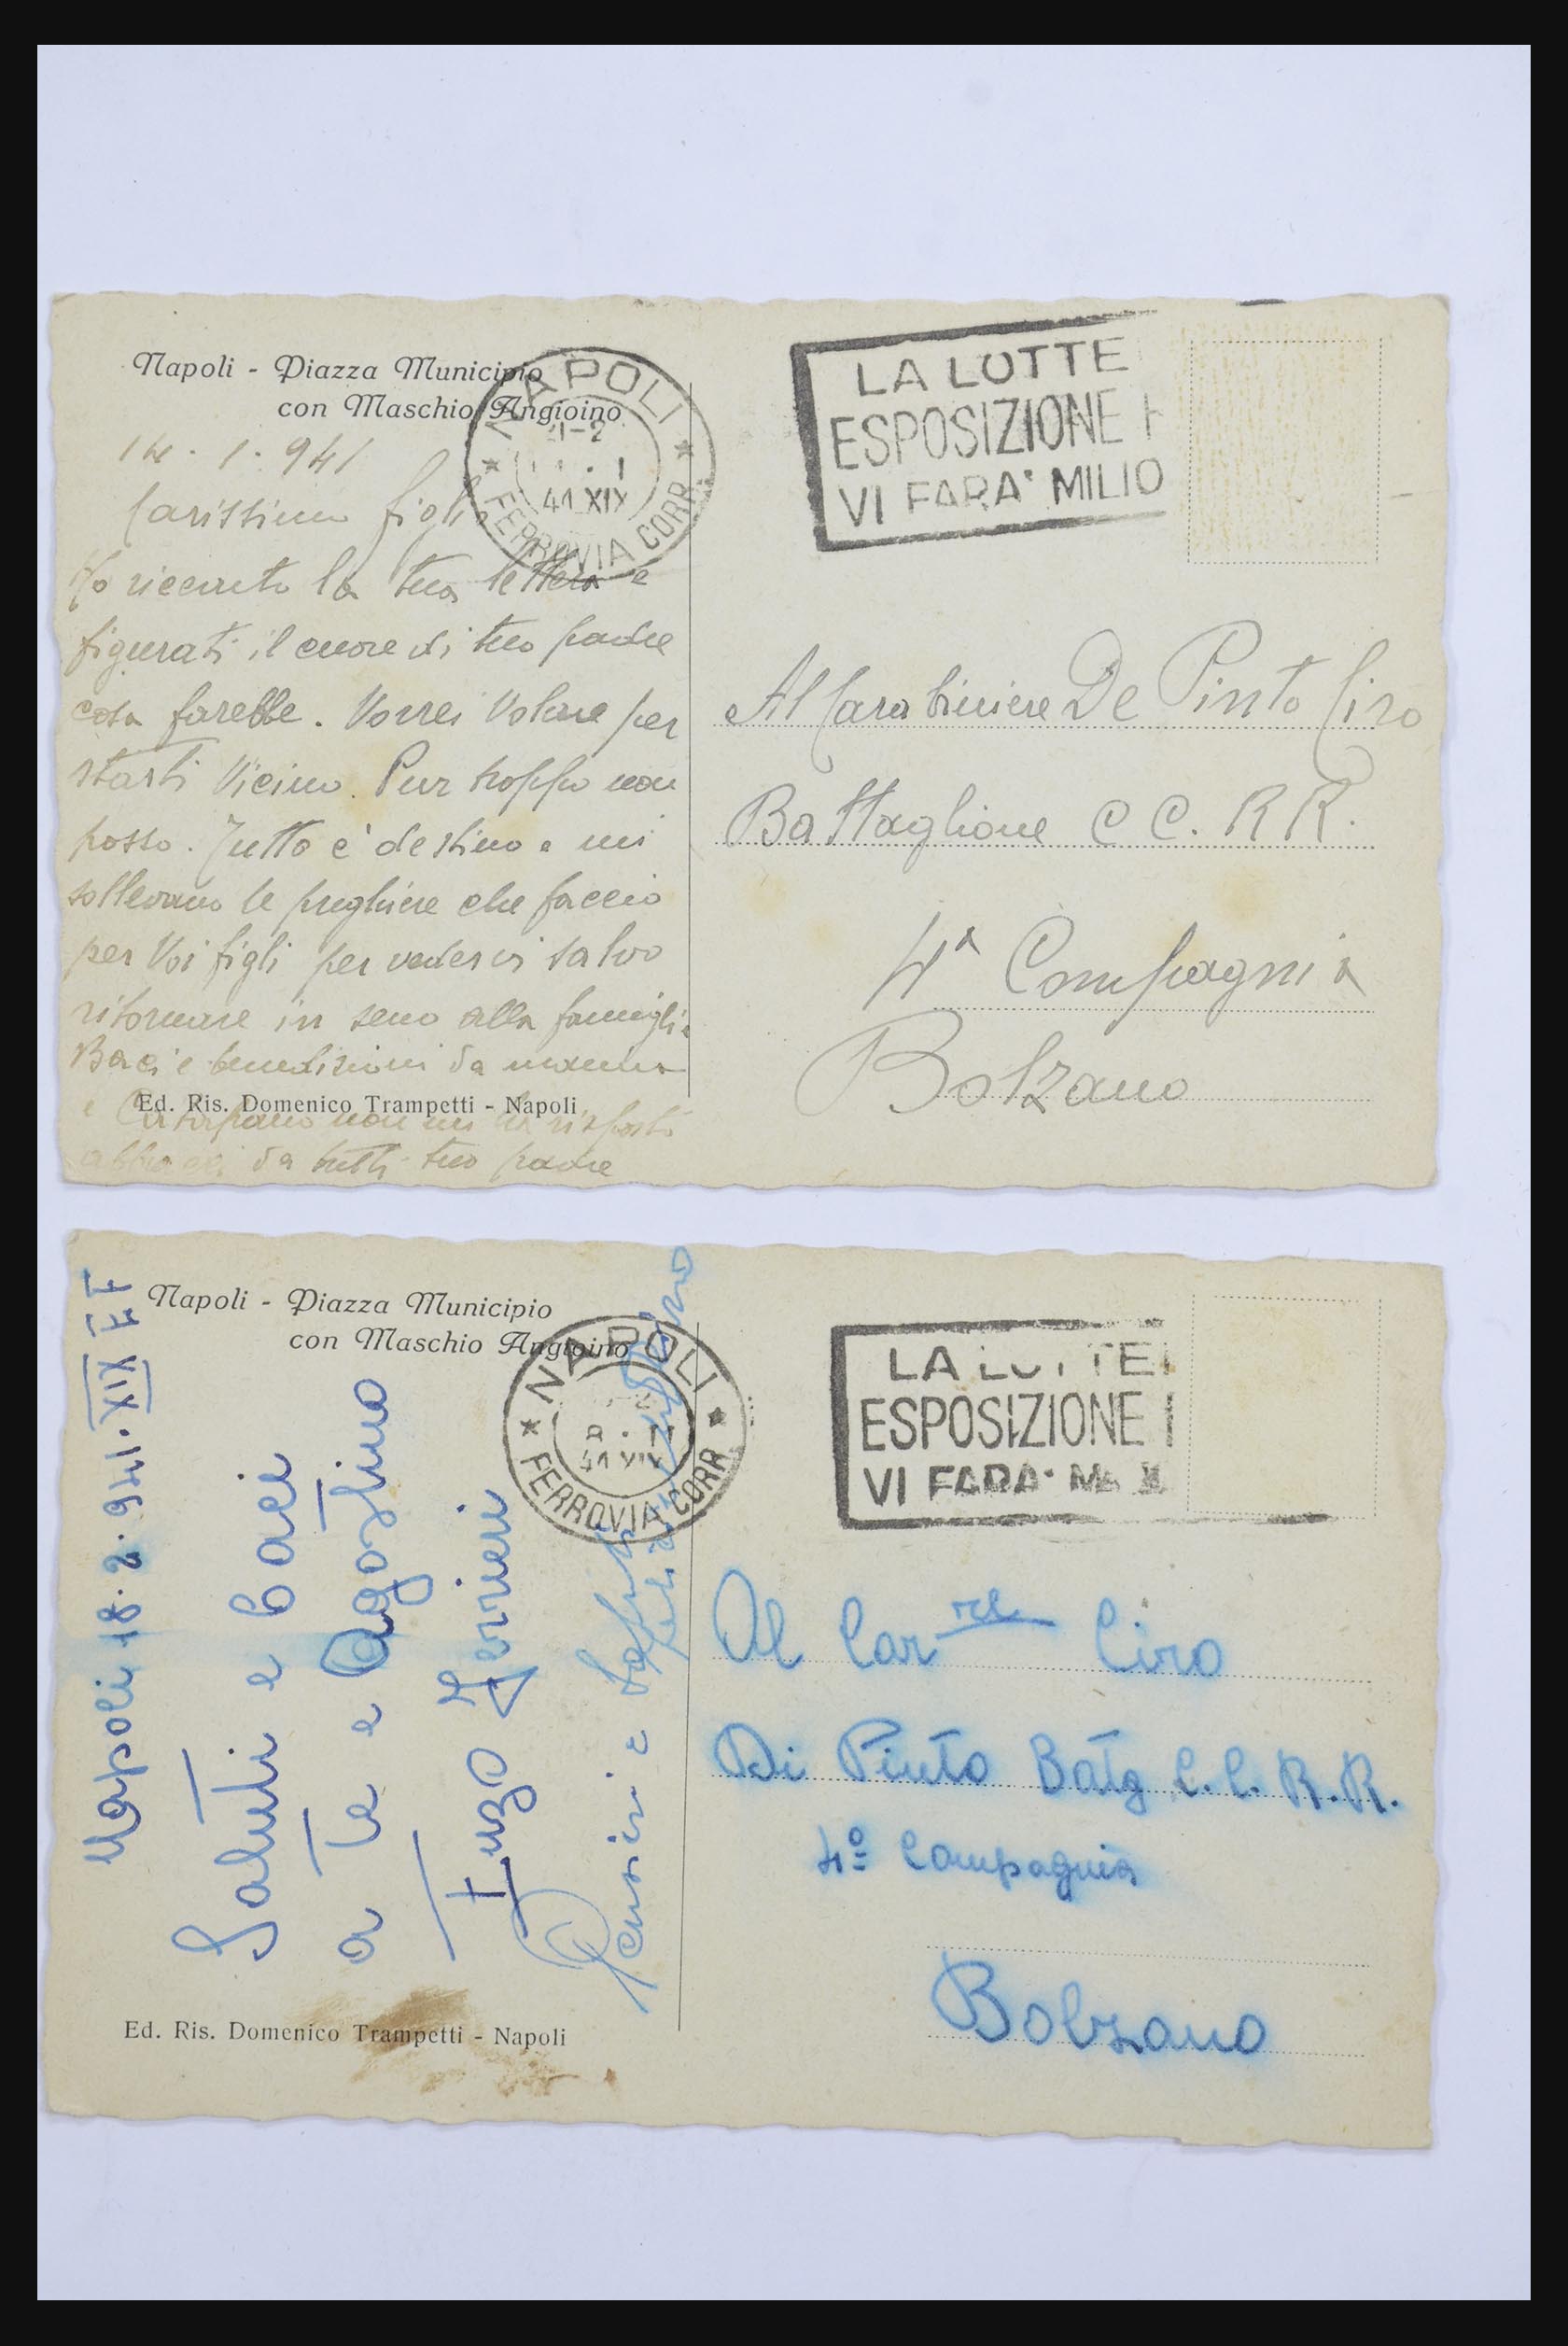 Napoli - Piazza Municipio
con Maschio Angioino
NAPOLI
41 XIX
FERROVIA CORR.
LA LOTTE
ESPOSIZIONE
VI FARA' MILIO
14.1.941
Carissimo figlio
Ho ricevuto la tua lettera e
figurati il cuore di tuo padre
cosa farebbe. Vorrei Volare per
starti Vicino. Pur troppo non
posso. Tutto è destino e mi
sollevano le preghiere che faccio
per Voi figli per vedervi salvo
ritornare in seno alla famiglia
Baci e benedizioni da mamma
e non mi ha risposto
abbracci da tutti tuo padre
Ed. Ris. Domenico Trampetti - Napoli
Al Carabiniere De Pinto Ciro
Battaglione C C. R R.
4ª Compagnia
Bolzano
Napoli - Piazza Municipio
con Maschio Angioino
NAPOLI
41 XIX
FERROVIA CORR.
LA LOTTE
ESPOSIZIONE
VI FARA'
Napoli 18.2.941. XIX EF
Saluti e baci
a Te e Agostino
Enzo
Pensieri e
Ed. Ris. Domenico Trampetti - Napoli
Al Carre Ciro
Di Pinto Batg C.C. R.R.
4º Compagnia
Bolzano